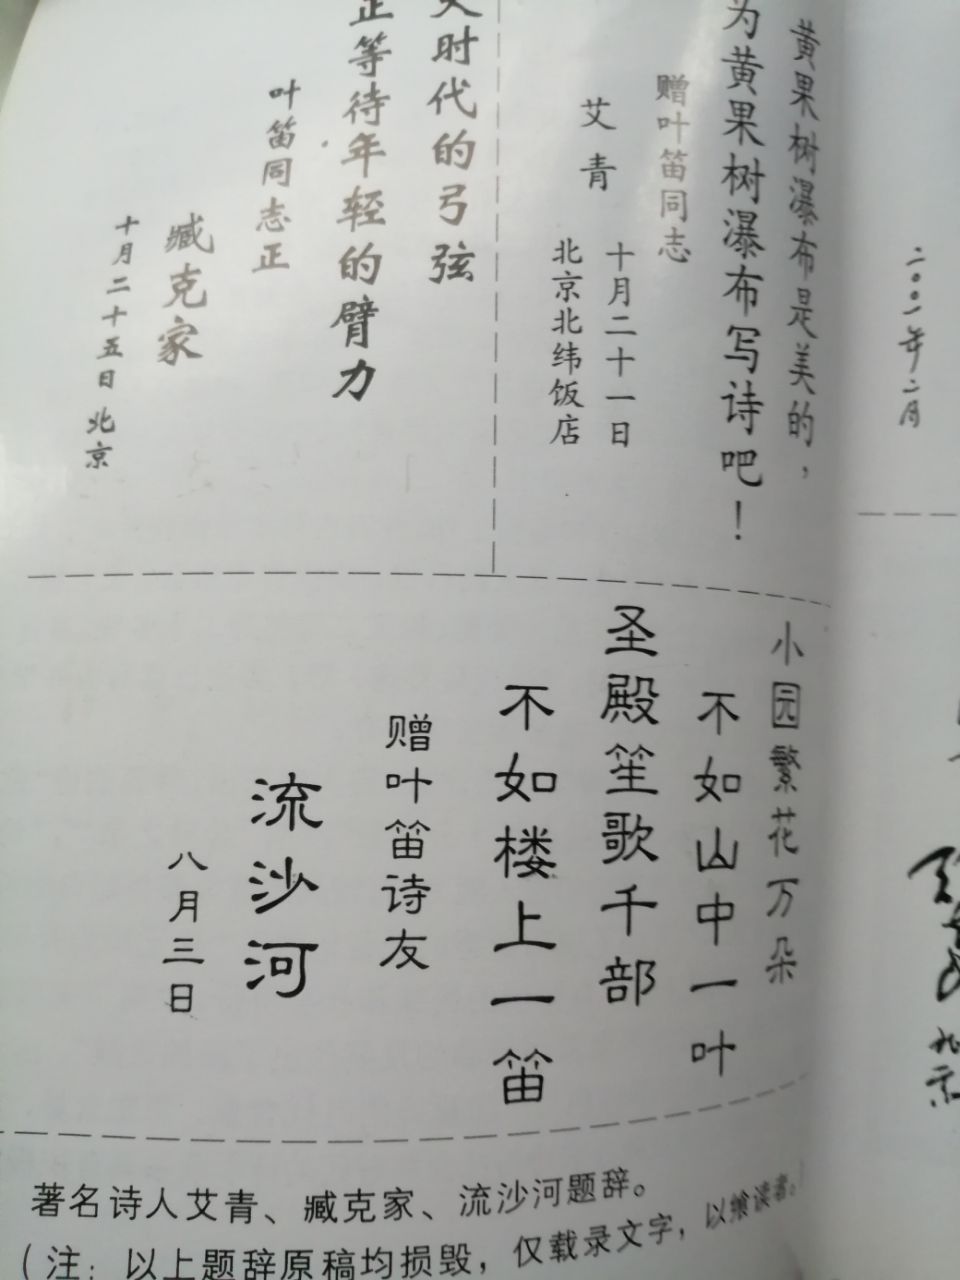 黄果树瀑布是美的，
为黄果树瀑布写诗吧！
赠叶笛同志
艾青
十月二十一日
北京北纬饭店
时代的弓弦
正等待年轻的臂力
叶笛同志正
臧克家
十月二十五日 北京
小园繁花万朵
不如山中一叶
圣殿笙歌千部
不如楼上一笛
赠叶笛诗友
流沙河
八月三日
著名诗人艾青、臧克家、流沙河题辞。
（注：以上题辞原稿均损毁，仅载录文字，以飨读者。
二〇〇一年二月
北京